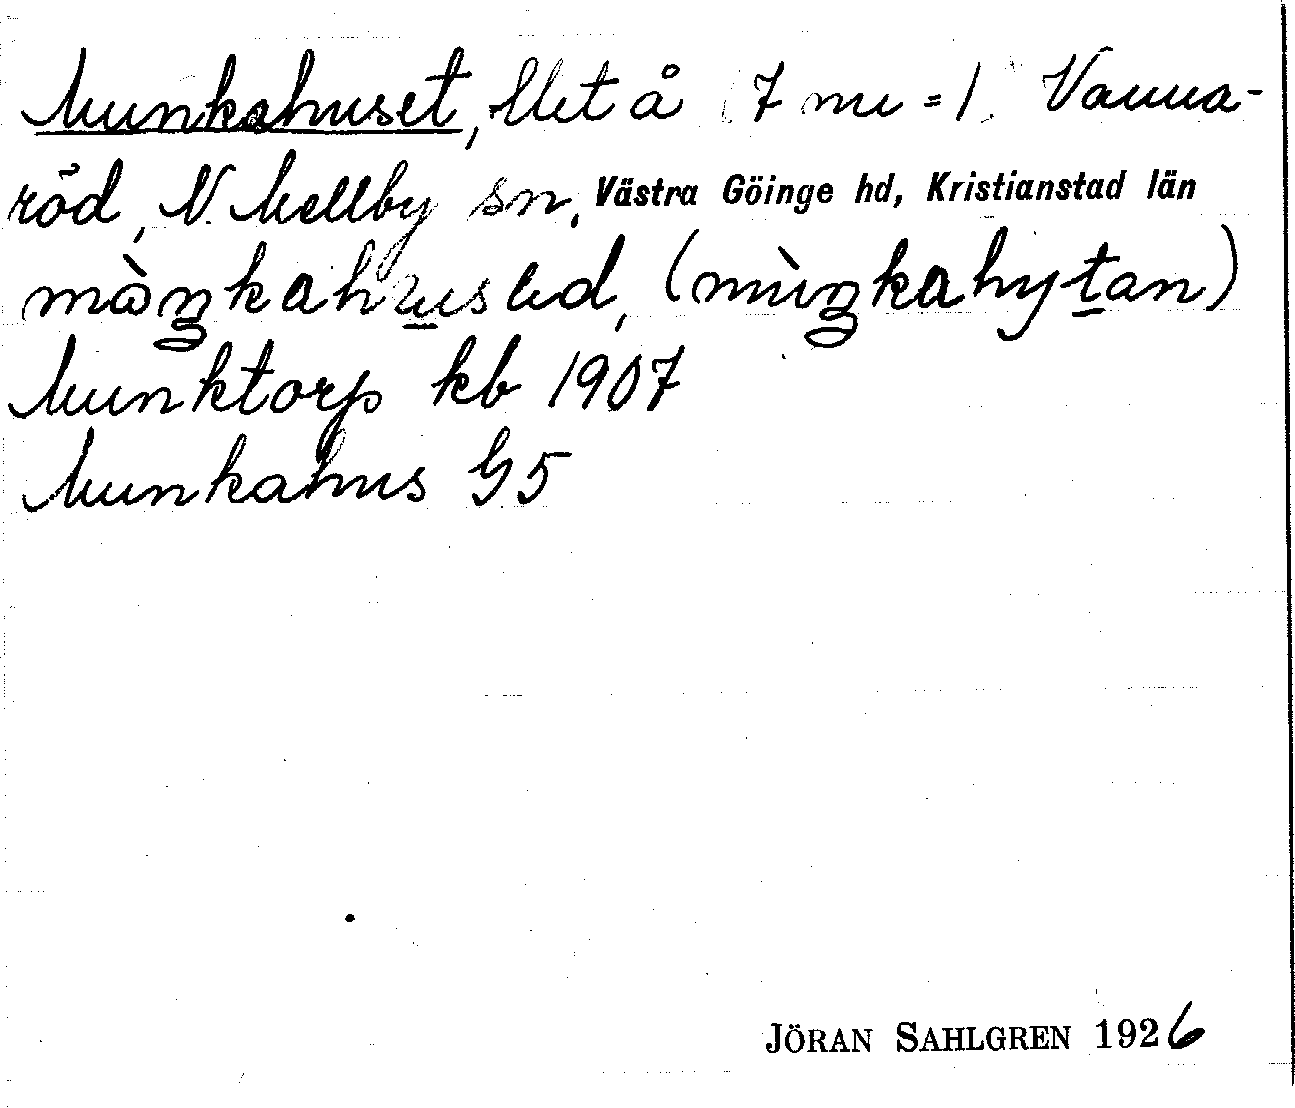 Munkahuset, llet å 7 mu = 1 Vanna-
röd, N. Mellby sn, Västra Göinge hd, Kristianstad län
mùŋkahusəd, (mùŋkahytan)
Munktorp kb 1907
Munkahus G5
JÖRAN SAHLGREN 1926